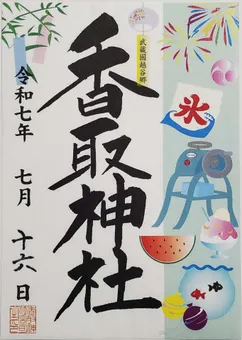 武蔵国越谷郷
香取神社
令和七年 七月 十六日
氷